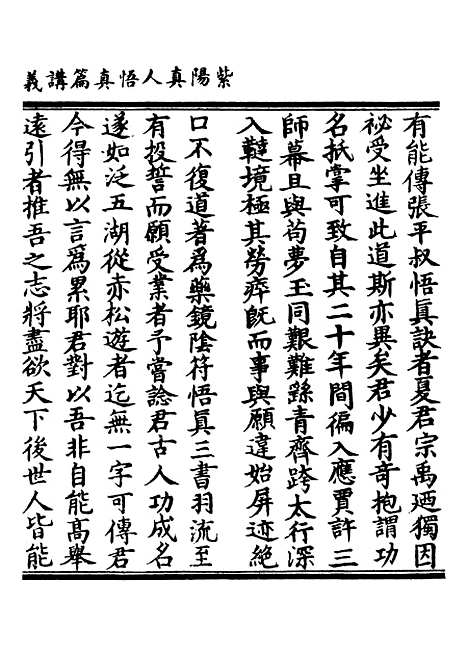 紫陽真人悟真篇講義
有能傳張平叔悟真訣者夏君宗禹廼獨因
祕受坐進此道斯亦異矣君少有奇抱謂功
名抵掌可致自其二十年間徧入應賈許三
師幕且與荀夢玉同艱難繇青齊跨太行深
入韃境極其勞瘁旣而事與願違始屏迹絕
口不復道著為藥鏡陰符悟真三書羽流至
有投誓而願受業者予嘗諗君古人功成名
遂如泛五湖從赤松遊者迄無一字可傳君
今得無以言為累耶君對以吾非自能高舉
遠引者推吾之志將盡欲天下後世人皆能